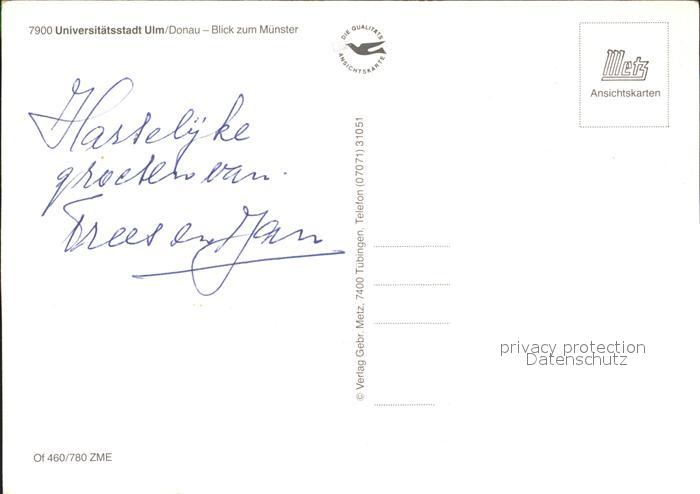 7900 Universitätsstadt Ulm/Donau – Blick zum Münster
DIE QUALITÄTS
ANSICHTSKARTE
Metz
Ansichtskarten
Hartelijke
groeten van.
Trees en Jan
© Verlag Gebr. Metz, 7400 Tübingen, Telefon (07071) 31051
privacy protection
Datenschutz
Of 460/780 ZME